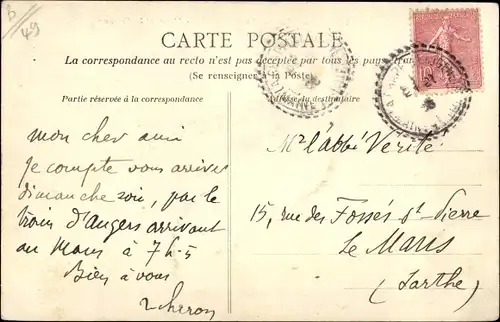 B/49
CARTE POSTALE
La correspondance au recto n'est pas acceptée par tous les pays étrangers
(Se renseigner à la Poste)
Partie réservée à la correspondance
Adresse du destinataire
Mon cher ami
Je compte vous arriver
dimanche soir, par le
train d'Angers arrivant
au Mans à 7h-5
Bien à vous
Mr l'abbé Verité
15, rue des Fossés St-Pierre
Le Mans
(Sarthe)